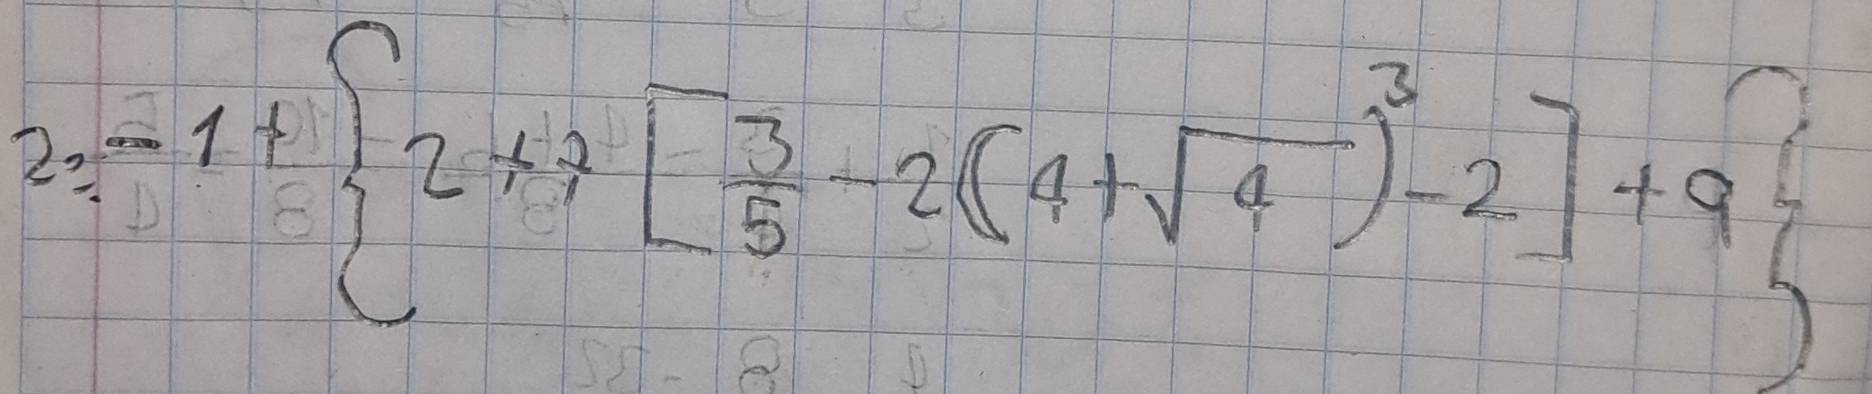 2: -1 + { 2 + 7 [ 3/5 - 2 ( 4 + √4 )³ - 2 ] + 9 }